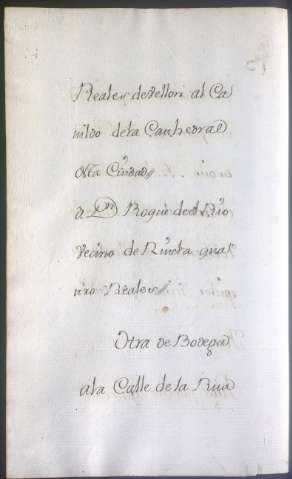 Reales de Vellon al Ca
vildo de la Cathedral
dsta Ciudad
a Dn Roque del Rio
vecino de Rueta quat
tro Reales
Otra de Bodega
a la Calle de la Rua